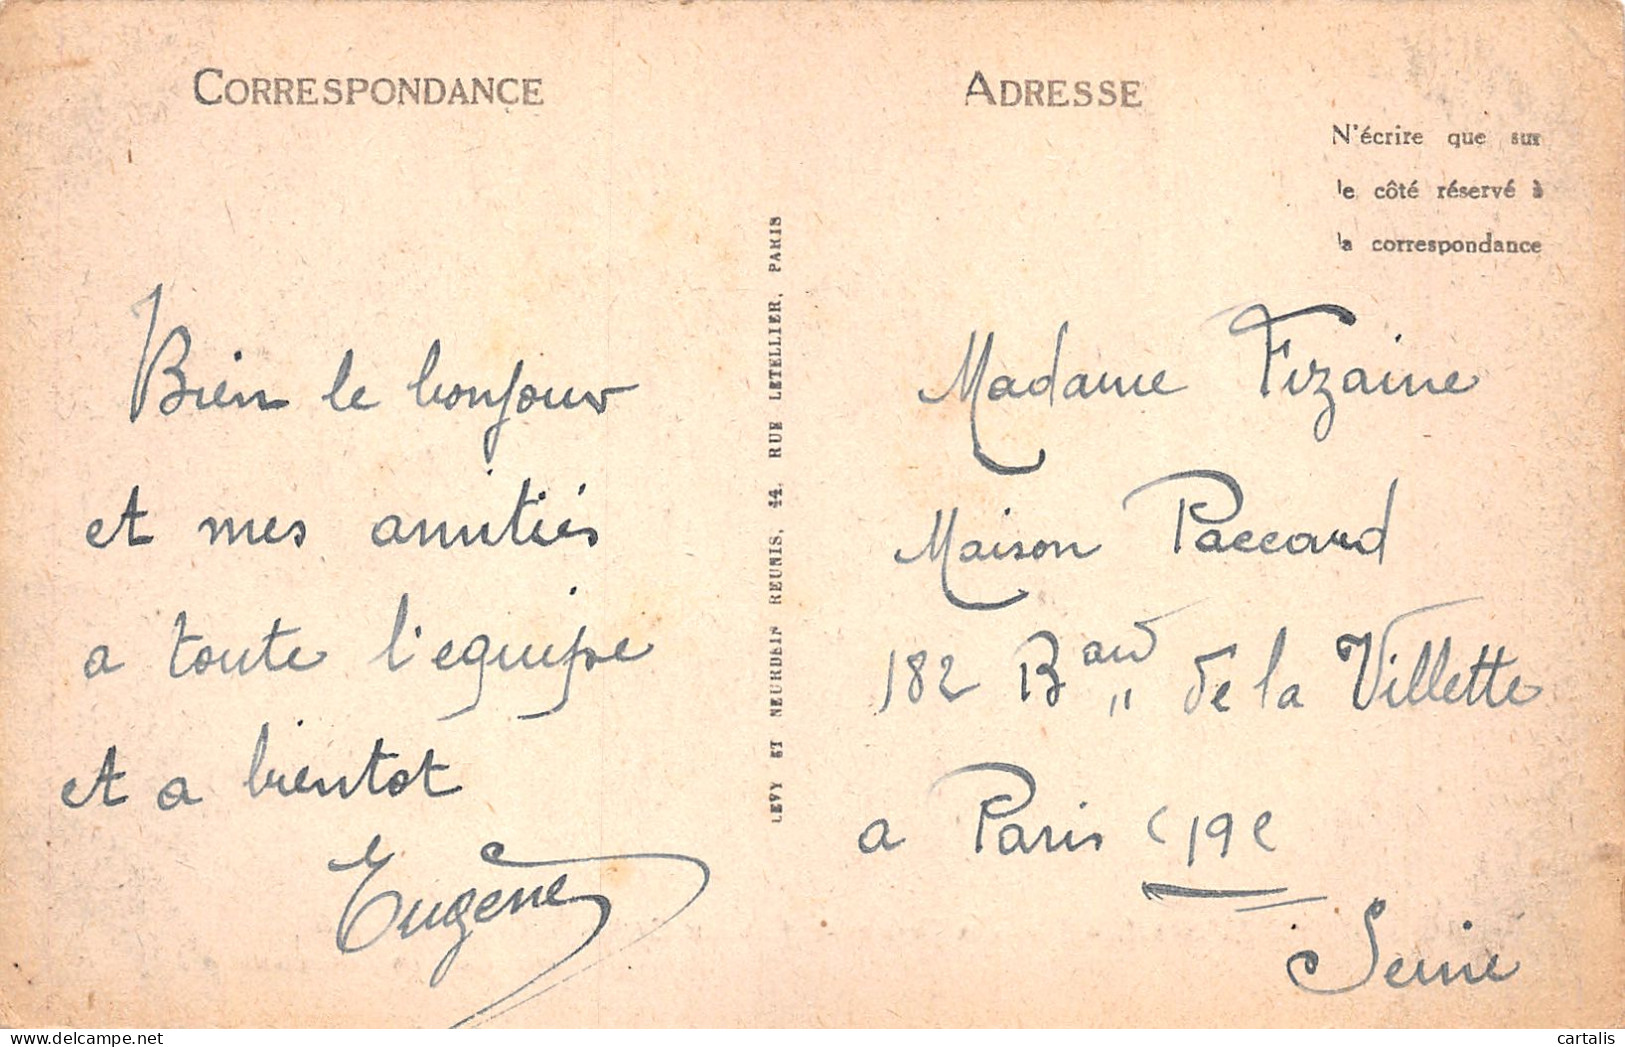 CORRESPONDANCE
Bien le bonjour
et mes amitiés
a toute l'equipe
et a bientot
Eugène
LEVY ET NEURDEIN REUNIS, 44, RUE LETELLIER, PARIS
ADRESSE
N'écrire que sur
le côté réservé à
la correspondance
Madame Fizaine
Maison Paccard
182 Bard de la Villette
a Paris (19e
Seine
delcampe.net
cartalis